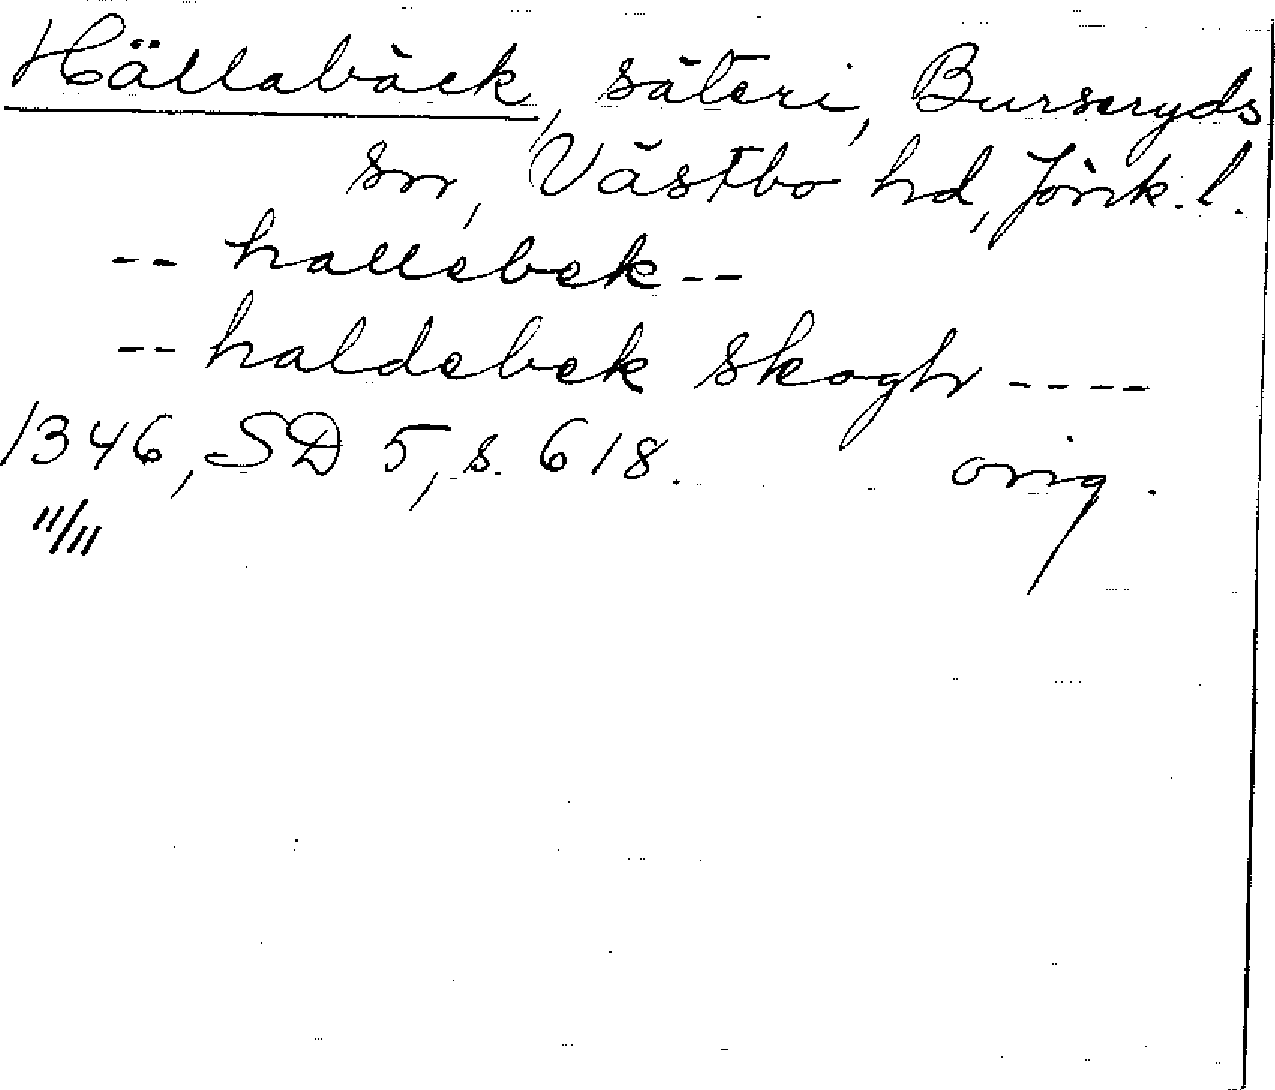 Hällabäck, säteri, Burseryds
sn, Västbo hd, Jönk. l.
-- hallebek --
-- haldebek skogh ----
1346, SD 5, s. 618. orig.
11/11